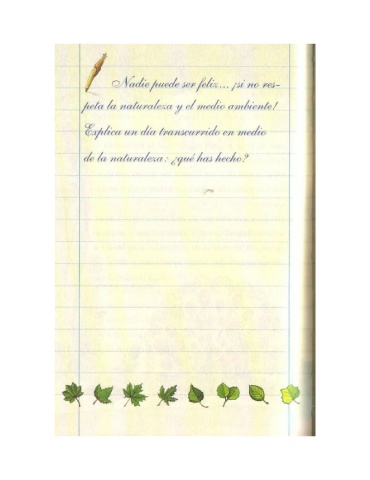 Nadie puede ser feliz... ¡si no res-
peta la naturaleza y el medio ambiente!
Explica un día transcurrido en medio
de la naturaleza: ¿qué has hecho?